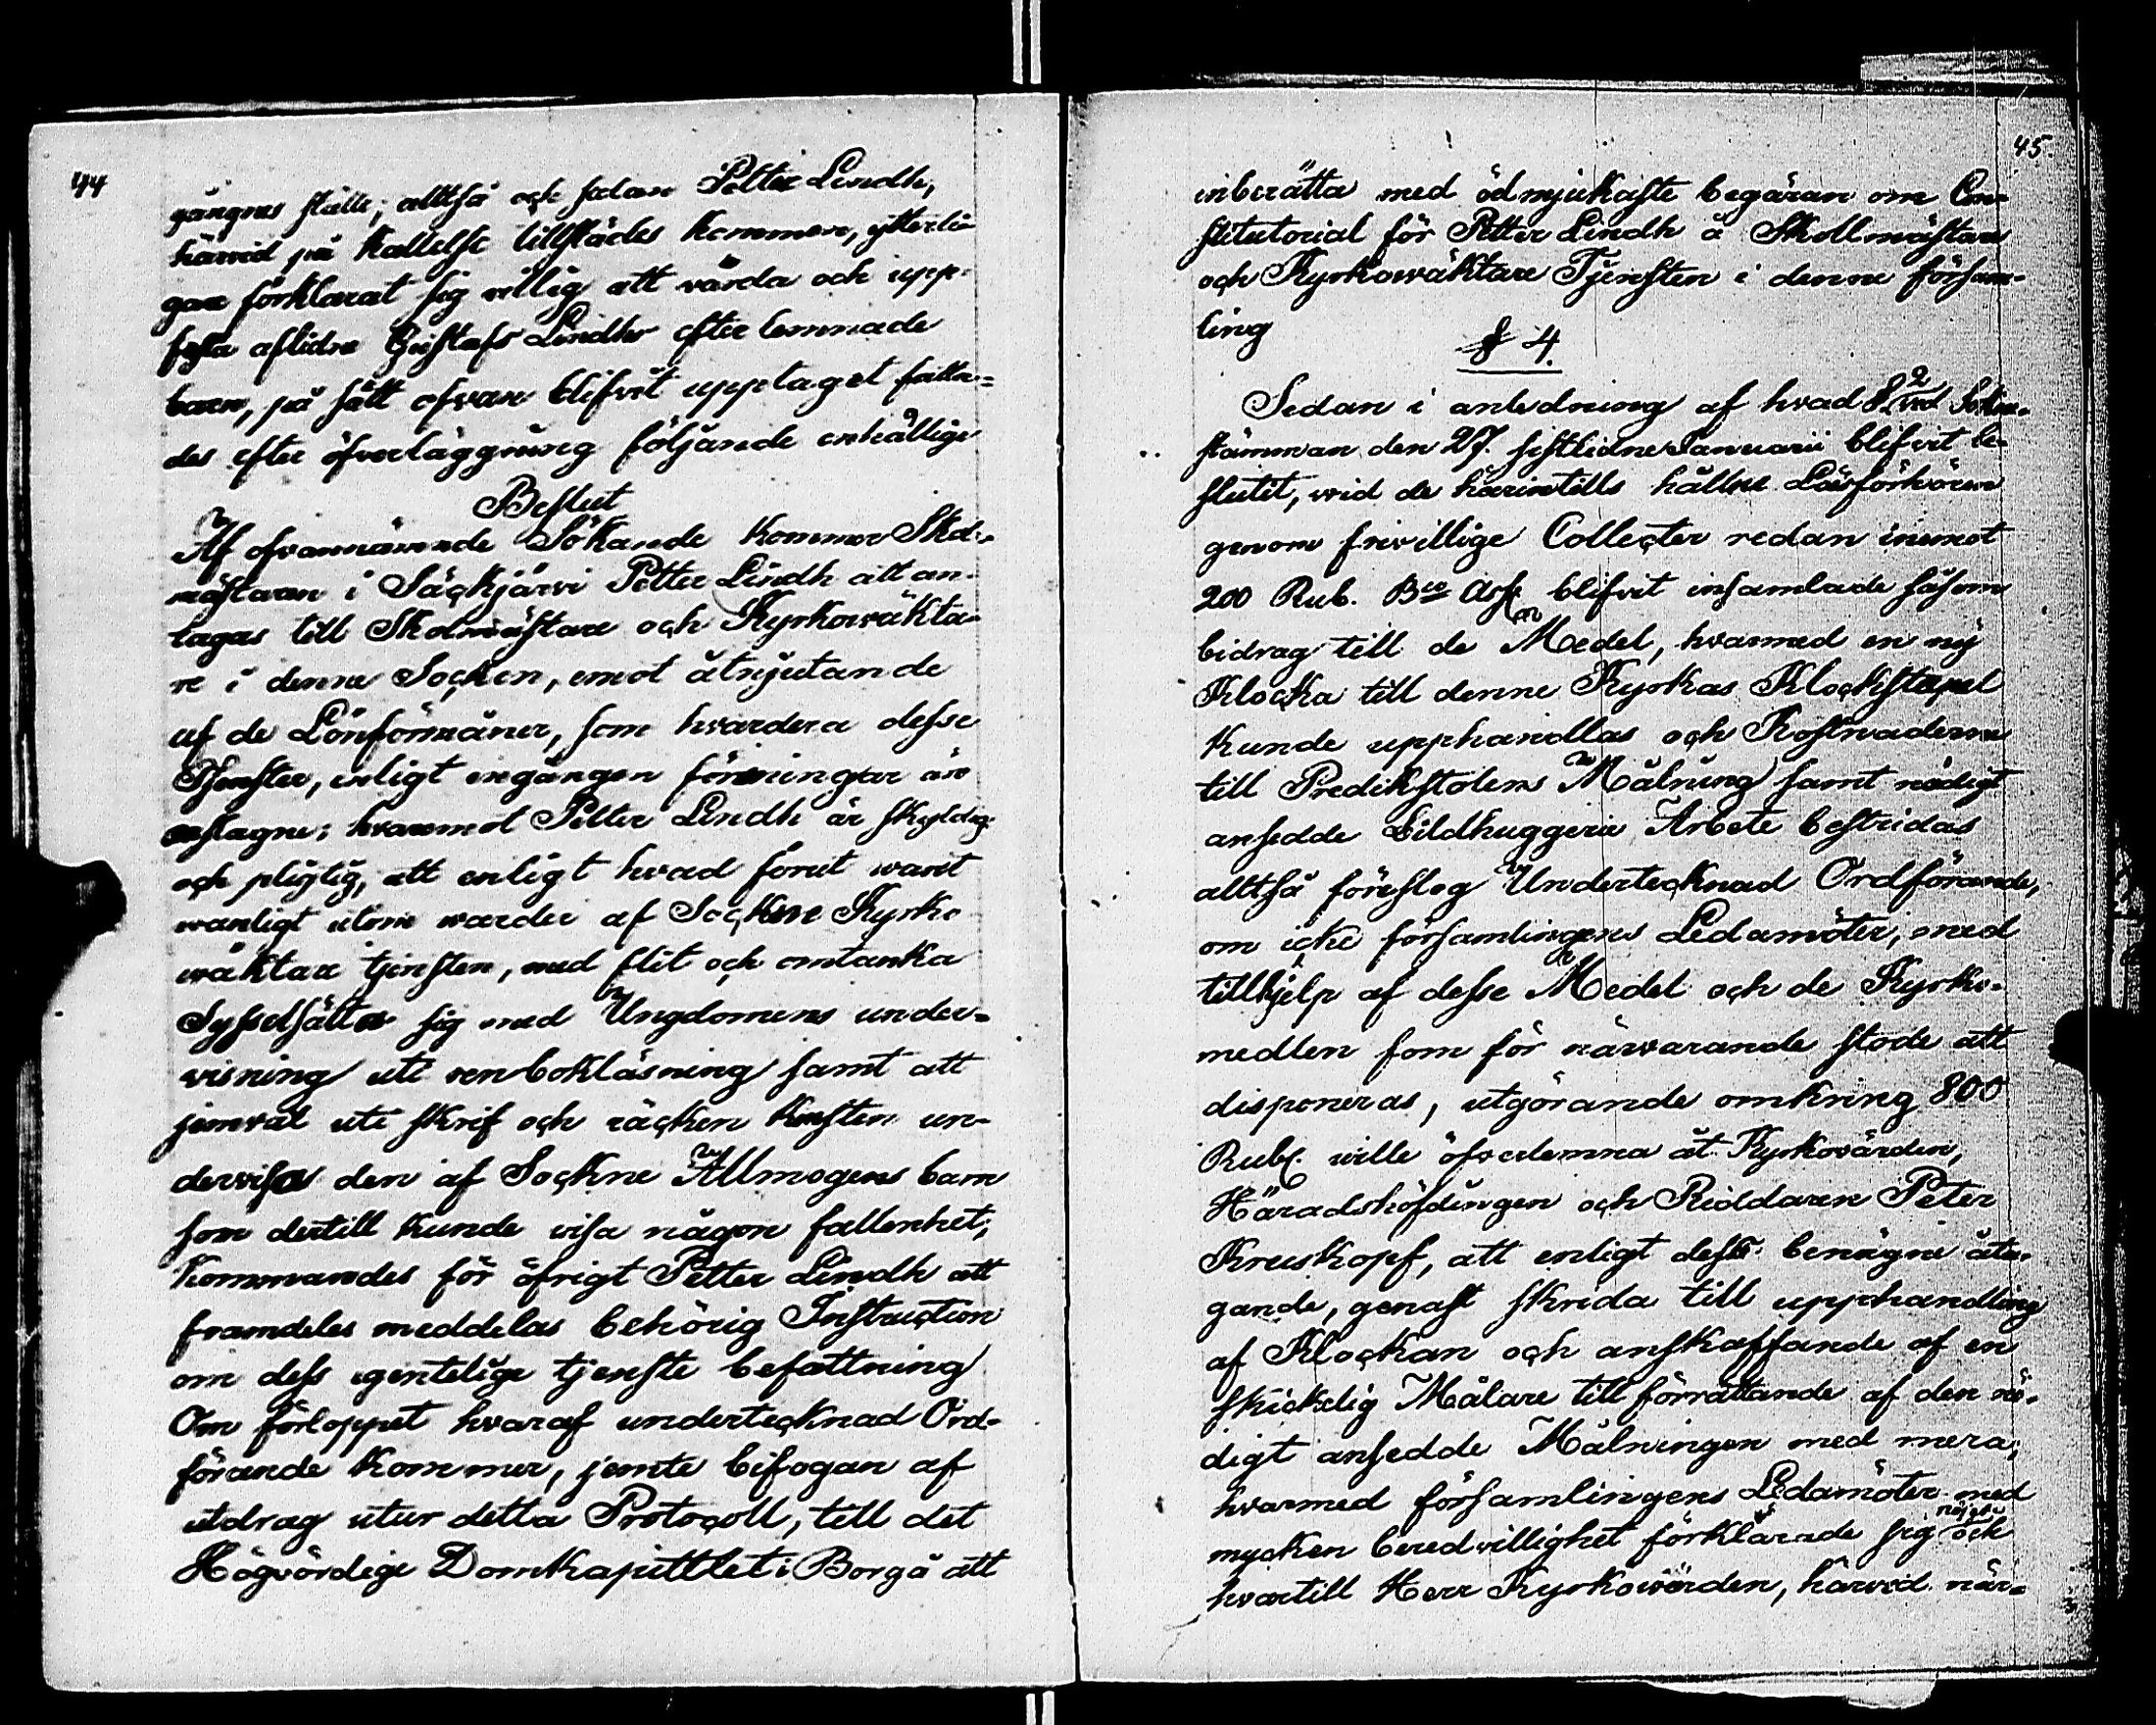 44
gångnes ställe; alltså och sedan Petter Lindh,
härvid på kallelse tillstädes kommen, ytterli-
gare förklarat sig villig att vårda och upp-
fostra aflidne Gustafs Lindhs efter lemnade
barn, på sätt ofvan blifvit upptaget fatta-
des efter öfverläggning följande enhällige
Beslut
Af ofvannämnde Sökande kommer Skol-
mästaren i Säckjärvi Petter Lindh att an-
tagas till Skolmästare och Kyrkowäkta-
re i denne Socken, emot åtnjutande
af de Lönförmåner, som hvardera desse
Tjenster, enligt engången föreningar äro
anslagne; hvaremot Petter Lindh är skyldig
och pligtig, att enligt hvad förut warit
wanligt utom warder af Sockne Kyrko
wäktare tjensten, med flit och omtanka
Sysselsätta sig med Ungdomens under-
visning uti renboklåsning samt att
jemväl uti skrif och räcken konsten un-
dervisa den af Sockne Allmogens barn
som dertill kunde visa någon fallenhet;
Kommandes för öfrigt Petter Lindh att
framdeles meddelas behörig Instruction
om dess egentelige tjenste befattning
Om förloppet hvaraf undertecknad Ord-
förande kommer, jemte bifogan af
utdrag utur detta Protocoll, till det
Högvördige Domkapittlet i Borgå att
45.
inberätta med ödmjukaste begäran om Con-
stitutorial för Petter Lindh å Skollmästare
och Kyrkowäktare Tjensten i denne försam-
ling
§ 4.
Sedan i anledning af hvad § 2 wid Sokne-
stämman den 27. sistlidne Januarii blifvit be-
slutit, wid de härintills hållne Läsförhören
genom frivillige Collecter redan inemot
200 Rub. Bco Ass. blifvit insamlade såsom
bidrag till de Medel, hvarmed en ny
Klocka till denne Kyrkas Klockstapel
kunde upphandlas och Kostnaderne
till Predikstolens Målning samt nödigt
ansedde Bildhuggerie Arbete bestridas
alltså föreslog Undertecknad Ordförande,
om icke församlingens Ledamöter, med
tillhjelp af desse Medel och de Kyrko-
medlen som för närvarande stode att
disponeras, utgörande omkring 800
Rub. wille öfverlemna åt Kyrkovärden,
Häradshöfdingen och Riddaren Peter
Kreuskopf, att enligt dess benägne åta-
gande, genast skrida till upphandling
af Klockan och anskaffande af en
skickelig Målare till förrättande af den nö-
digt ansedde Målningen med mera;
hvarmed församlingens Ledamöter med
mycken beredvillighet förklarade sig nöjde och
hvartill Herr Kyrkowärden, härvid när-